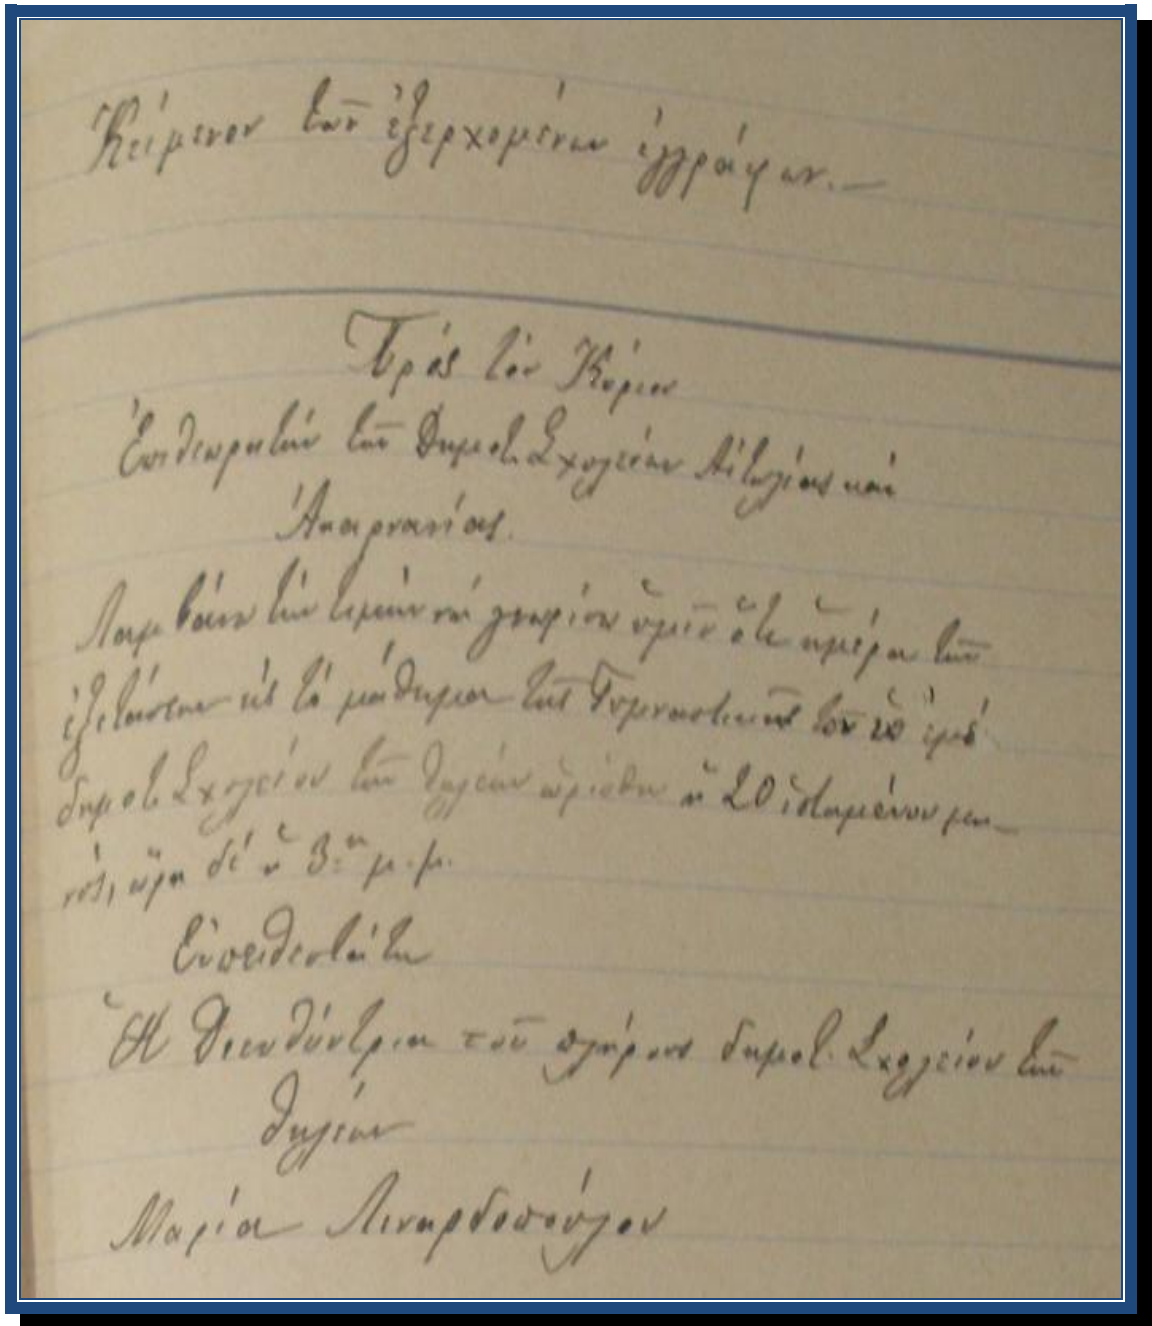 Κείμενον τῶν ἐξερχομένων ἐγγράφων.—
Πρός τόν Κύριον
Ἐπιθεωρητήν τῶν Δημοτ. Σχολείων Αἰτωλίας καί
Ἀκαρνανίας.
Λαμβάνω τήν τιμήν νά γνωρίσω ὑμῖν ὅτι ἡμέρα τῶν
ἐξετάσεων εἰς τό μάθημα τῆς Γυμναστικῆς τοῦ ὑπ' ἐμέ
δημοτ. Σχολείου τῶν θηλέων ὡρίσθη ἡ 20 ἱσταμένου μη-
νός, ὥρα δέ ἡ 3:η μ.μ.
Εὐπειθεστάτη
Ἡ Διευθύντρια τοῦ πλήρους δημοτ. Σχολείου τῶν
θηλέων
Μαρία Λιναρδοπούλου